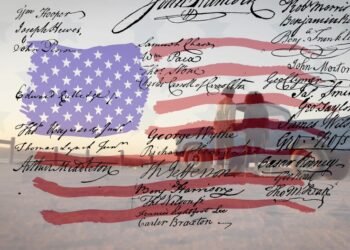 Wm Hooper
Joseph Hewes,
John Penn
Edward Rutledge
Thos Heyward Junr.
Thomas Lynch Junr.
Arthur Middleton
John Hancock
Samuel Chase
Wm Paca
Thos Stone
Charles Carroll of Carrollton
George Wythe
Richard
Th Jefferson
Benj Harrison
Thos Nelson jr.
Francis Lightfoot Lee
Carter Braxton
Robt Morris
Benjamin
Benj. Franklin
John Morton
Geo Clymer
Jas. Smith
Geo. Taylor
Geo. Ross
Caesar Rodney
Geo Read
Tho M:Kean